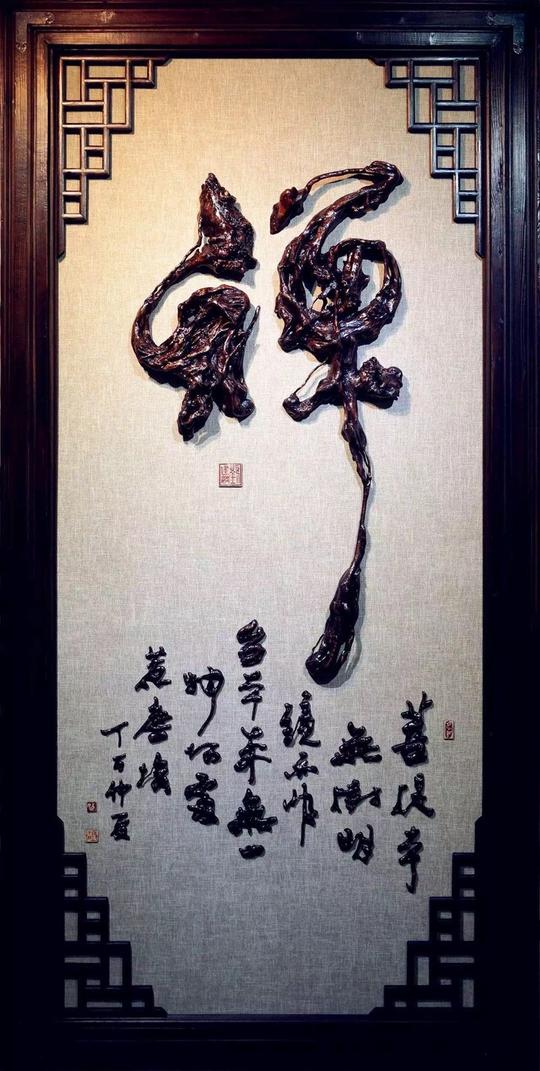 禪
菩提本
無樹明
鏡亦非
台本來無一
物何處
惹塵埃
丁酉仲夏